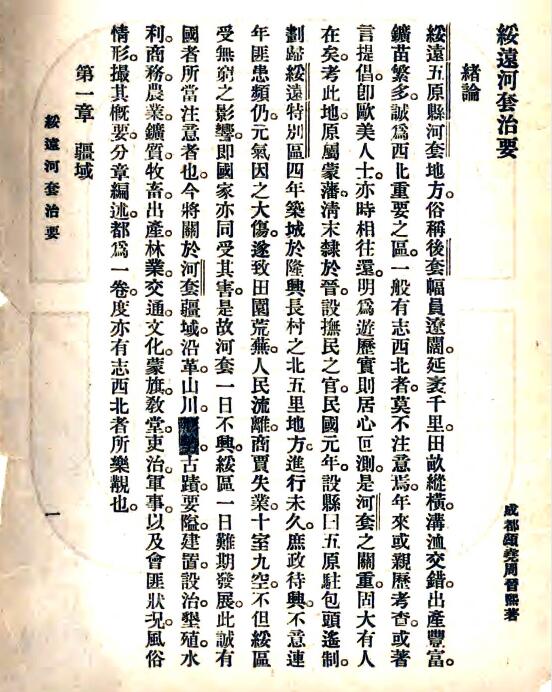 綏遠河套治要
成都頤堯周晉熙著
緒論
綏遠五原縣河套地方。俗稱後套。幅員遼闊。延袤千里。田畝縱橫。溝洫交錯。出產豐富。
鑛苗繁多。誠爲西北重要之區。一般有志西北者。莫不注意焉。年來或親歷考查。或著
言提倡。卽歐美人士。亦時相往還。明爲遊歷。實則居心叵測。是河套之關重。固大有人
在矣。考此地。原屬蒙藩。清末隸於晉。設撫民之官。民國元年設縣曰五原。駐包頭遙制。
劃歸綏遠特別區。四年築城於隆興長村之北五里地方。進行未久。庶政待興。不意連
年匪患頻仍。元氣因之大傷。遂致田園荒蕪。人民流離。商賈失業。十室九空。不但綏區
受無窮之影響。即國家亦同受其害。是故河套一日不興。綏區一日難期發展。此誠有
國者所當注意者也。今將關於河套疆域。沿革。山川。古蹟。要隘。建置。設治。墾殖。水
利。商務。農業。鑛質。牧畜。出產。林業。交通。文化。蒙旗。敎堂。吏治。軍事。以及會匪狀況。風俗
情形。撮其概要。分章編述。都爲一卷。度亦有志西北者所樂觀也。
第一章　疆域
綏遠河套治要
一